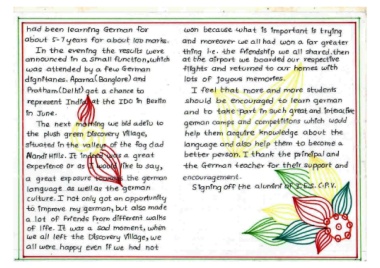 had been learning German for
about 5-7 years for about 100 marks.
In the evening the results were
announced in a small function, which
was attended by a few German
dignitaries. Aparna (Banglore) and
Pratham (Delhi) got a chance to
represent India at the IDO in Berlin
in June.
The next morning we bid adeiu to
the plush green Discovery Village,
situated in the valleys of the fog clad
Nandi Hills. It indeed was a great
experience or as I would like to say,
a great exposure towards the german
language as well as the german
culture. I not only got an opportunity
to improve my german, but also made
a lot of friends from different walks
of life. It was a sad moment, when
we all left the Discovery Village, we
all were happy even if we had not
won because what is important is trying
and moreover we all had won a far greater
thing i.e. the friendship we all shared. then
at the airport we boarded our respective
flights and returned to our homes with
lots of joyous memories.
I feel that more and more students
should be encouraged to learn german
and to take part in such great and interactive
german camps and competitions which would
help them acquire knowledge about the
language and also help them to become a
better person. I thank the principal and
the German teacher for their support and
encouragement.
Signing off the alumni of